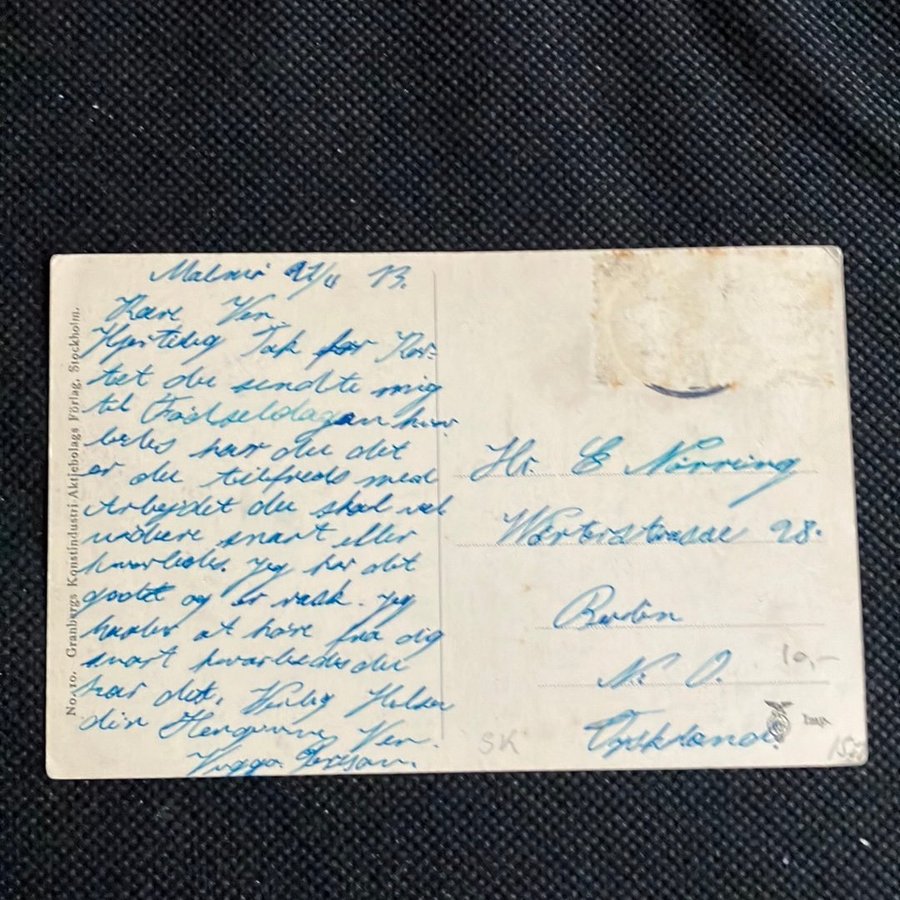 Malmö 21/11 13.
Kære Ven.
Hjertelig Tak for Kor-
tet du sendte mig
til Fødselsdagen hvor
ledes har du det
er du tilfreds med
Arbejdet du skal vel
videre snart eller
hvorledes. Jeg har det
godt og er rask. Jeg
haaber at höre fra dig
snart hvorledes du
har det. Venlig Hilsen
din Hengivne Ven.
Viggo
Hr. E Nörring
98.
Berlin
N. O.
Tyskland.
No. 10. Granbergs Konstindustri-Aktiebolags Förlag, Stockholm.
Imp.
10,-
SK